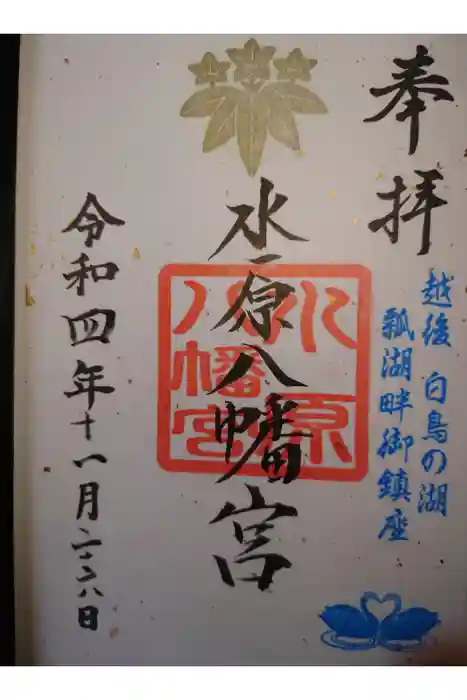 奉拝
越後 白鳥の湖
瓢湖畔御鎮座
水原八幡宮
水原八幡宮
令和四年十一月二十六日